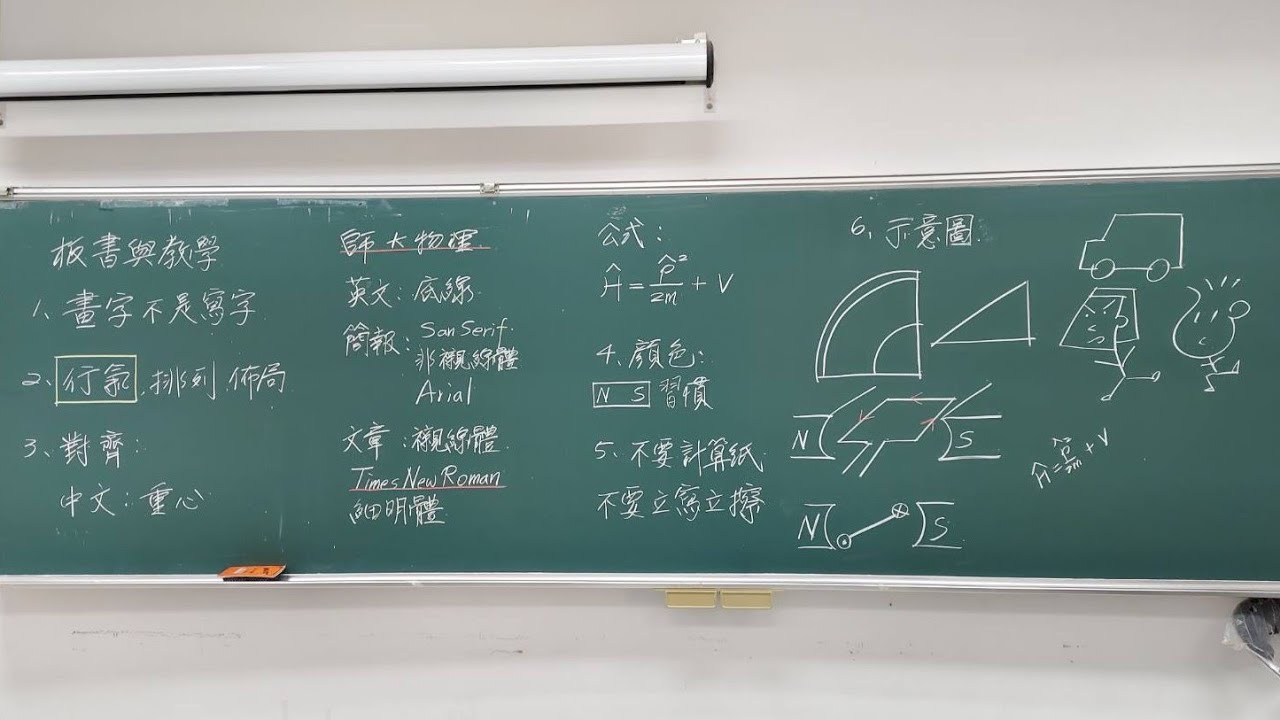 板書與教學
1、畫字不是寫字
2、行氣,排列佈局
3、對齊:
中文:重心
師大物理
英文:底線
簡報:San Serif.
非襯線體
Arial
文章:襯線體
Times New Roman
細明體
公式:
Ĥ = p̂²/2m + V
4、顏色:
N S 習慣
5、不要計算紙
不要立寫立擦
6、示意圖
N S
N S
Ĥ = p̂/2m + V